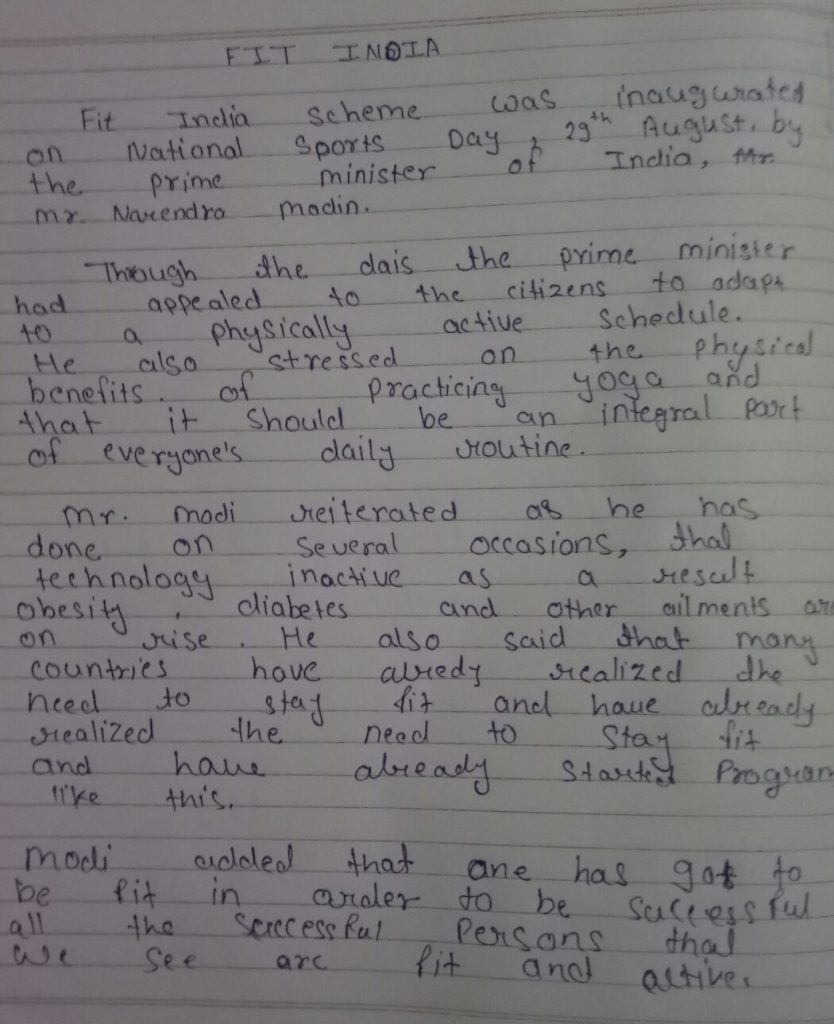 FIT INDIA
Fit India scheme was inaugurated
on National Sports Day, 29th August. by
the prime minister of India, Mr.
mr. Narendra modin.
Through the dais the prime minister
had appealed to the citizens to adapt
to a physically active schedule.
He also stressed on the physical
benefits. of practicing yoga and
that it should be an integral part
of everyone's daily routine.
mr. modi reiterated as he has
done on several occasions, that
technology inactive as a result
obesity, diabetes and other ailments are
on rise. He also said that many
countries have alredy realized the
need to stay fit and have already
realized the need to stay fit
and have already started Program
like this.
modi added that one has got to
be fit in order to be successful
all the successful persons that
we see are fit and active.